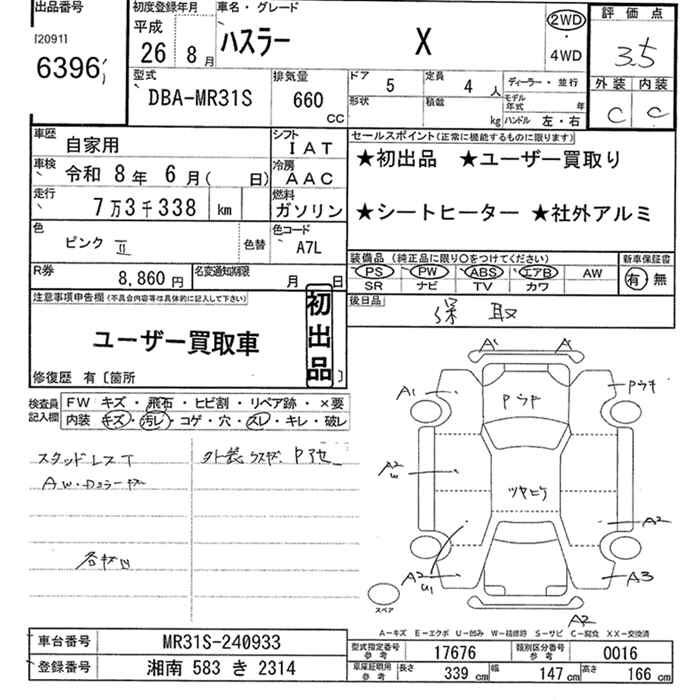 出品番号
[2091]
6396
初度登録年月
平成
26 8月
車名・グレード
ハスラー X
2WD
・
4WD
評価点
3.5
外装 内装
C C
型式
DBA-MR31S
排気量
660
CC
ドア 5
定員 4 人
ディーラー・並行
形状
積載 kg
モデル年式 年
ハンドル 左・右
車歴 自家用
シフト IAT
車検 令和 8年 6月( 日)
冷房 AAC
走行 7万3千338 km
燃料 ガソリン
色 ピンク II
色替
色コード A7L
R券 8,860円
名変通知期限 月 日
セールスポイント(正常に機能するものに限ります)
★初出品 ★ユーザー買取り
★シートヒーター ★社外アルミ
装備品(純正品に限り○をつけてください)
PS PW ABS エアB AW
SR ナビ TV カワ
新車保証書
有・無
後日品
保 取
注意事項申告欄(不具合内容等は具体的に記入して下さい)
ユーザー買取車
初出品
修復歴 有〔箇所 〕
検査員記入欄
FW キズ・飛石・ヒビ割・リペア跡・×要
内装 キズ・汚レ・コゲ・穴・スレ・キレ・破レ
スタッドレスT
A' A'
A1
Pウキ
A2
W
ツヤヒケ
A2
A2
U1
A3
A2
スペア
A-キズ E-エクボ U-凹み W-補修跡 S-サビ C-腐食 XX-交換済
車台番号 MR31S-240933
登録番号 湘南 583 き 2314
型式指定番号 参考 17676
類別区分番号 参考 0016
車庫証明用 参考 長さ 339 cm 幅 147 cm 高さ 166 cm